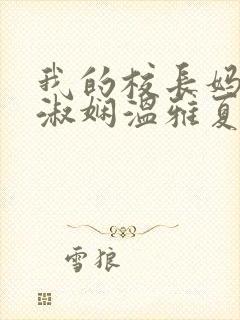 我的校長媽
淑嫻溫雅夏
雪狼